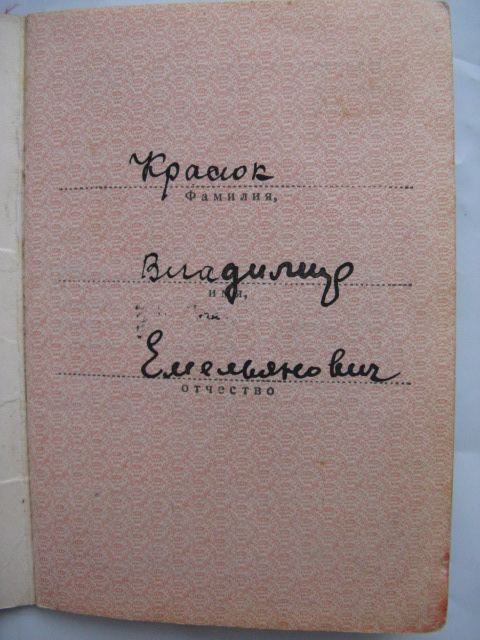 Красюк
Фамилия,
Владимир
имя,
Емельянович
отчество